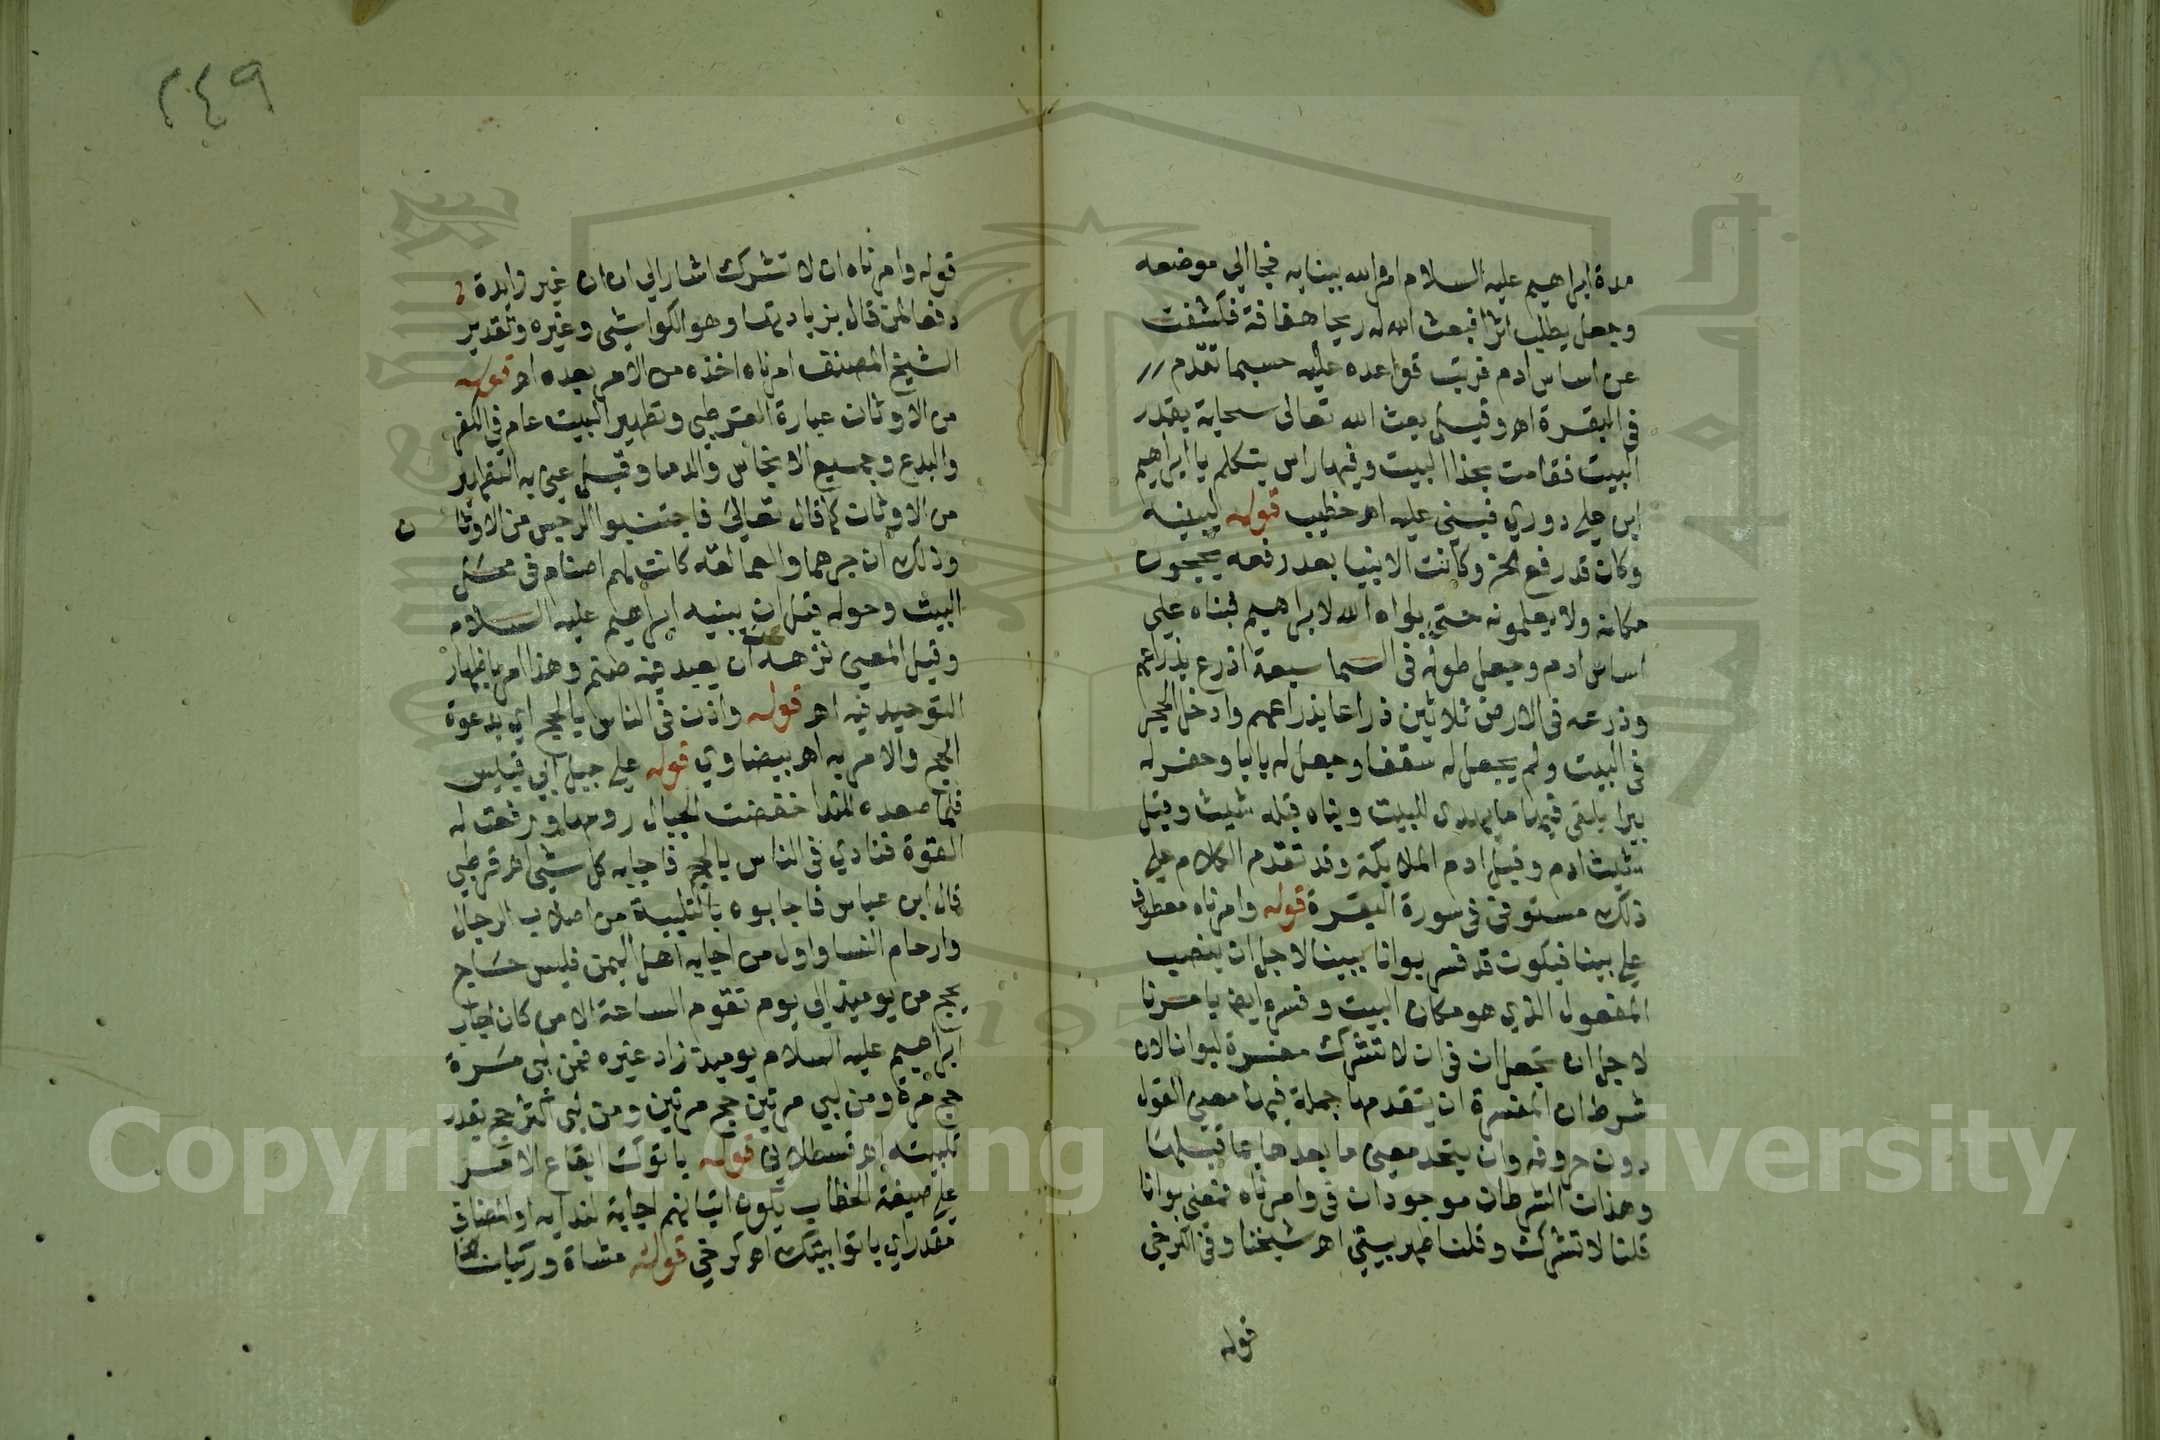 مدة ابراهيم عليه السلام امر الله ببنايه فجا الي موضعه
وجعل يطلب اثرا فبعث الله له ريحا هفافة فكشفت
عن اساس ادم فرتب قواعده عليه حسبما تقدم
في البقرة اهـ وقيل بعث الله تعالى سحابة بقدر
البيت فقامت بحذا البيت وفيها راس يتكلم يا ابراهيم
ابن علي دوري فبني عليه اهـ خطيب قوله ليبنيه
وكان قد رفع الخ وكانت الانبيا بعد رفعه يحجون
مكانه ولا يعلمونه حتي بواه الله لابراهيم فبناه علي
اساس ادم وجعل طوله في السما سبعة اذرع بذراعهم
وذرعه في الارض ثلاثين ذراعا بذراعهم وادخل الحجر
في البيت ولم يجعل له سقفا وجعل له بابا وحفر له
بيرا يلقى فيها ما يهدى للبيت وبناه قبله شيث وقبل
شيث ادم وقبل ادم الملايكة وقد تقدم الكلام علي
ذلك مستوفى في سورة البقرة قوله وامرناه معطوف
علي بينا فيكون قد فسر بوانا ببينا لاجل ان ينصب
المفعول الذي هو مكان البيت وفسره ايضا بامرنا
لاجل ان تجعل ان في ان لا تشرك مفسرة لبوانا لان
شرط ان المفسرة ان يتقدمها جملة فيها معنى القول
دون حروفه وان يتحد معنى ما بعدها بما قبلها
وهذان الشرطان موجودان في وامرناه فمعنى بوانا
قلنا لا تشرك وقلنا طهر بيتي اهـ شيخنا وفي الكرخي
قوله
٢٤٩
قوله وامرناه ان لا تشرك اشار الي ان ان غير زايدة
دفعا لمن قال بزيادتها وهو الكواشي وغيره وتقدير
الشيخ المصنف امرناه اخذه من الامر بعده اهـ قوله
من الاوثان عبارة القرطبي وتطهير البيت عام في الكفر
والبدع وجميع الانجاس والدما وقيل عنى به التطهير
من الاوثان كما قال تعالى فاجتنبوا الرجس من الاوثا ن
وذلك ان جرهما والعمالقه كانت لهم اصنام في محل
البيت وحوله قبل ان يبنيه ابراهيم عليه السلام
وقيل المعنى نزهه عن ان يعبد فيه صنم وهذا امر باظهار
التوحيد فيه اهـ قوله واذن في الناس بالحج اي بدعوة
الحج والامر به اهـ بيضاوي قوله علي جبل ابي قبيس
فلما صعده للندا خفضت الجبال روسها ورفعت له
القرى فنادي في الناس بالحج فاجابه كل شي اهـ قرطبي
قال ابن عباس فاجابوه بالتلبية من اصلاب الرجال
وارحام النسا واول من اجابه اهل اليمن فليس حاج
يحج من يوميذ الي يوم تقوم الساعة الا من كان اجاب
ابراهيم عليه السلام يوميذ زاد غيره فمن لبى مرة
حج مرة ومن لبي مرتين حج مرتين ومن لبى اكثر حج بقدر
تلبيته اهـ قسطلاني قوله ياتوك ايقاع الامر
علي صيغة الخطاب يكون اتيانهم اجابة لندايه او المضاف
مقدر اي ياتوا بيتك اهـ كرخي قوله مشاة وركبانا